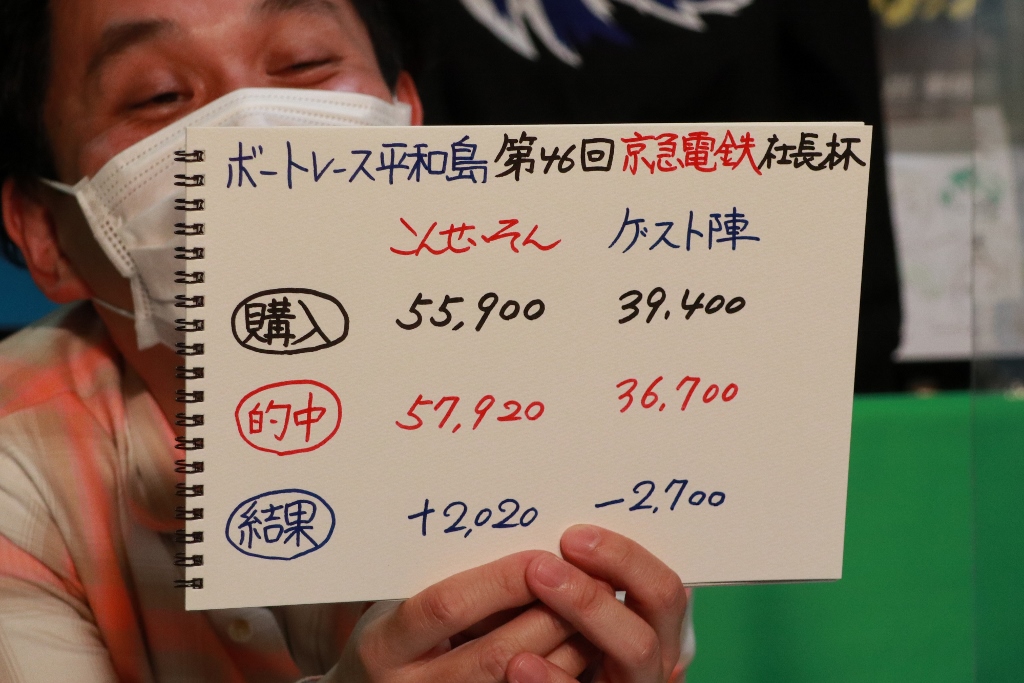 ボートレース平和島 第46回 京急電鉄社長杯
こんせいそん ゲスト陣
購入 55,900 39,400
的中 57,920 36,700
結果 +2,020 -2,700